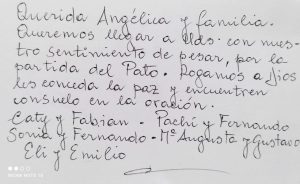 Querida Angélica y familia.
Queremos llegar a Uds. con nues-
tro sentimiento de pesar, por la
partida del Pato. Rogamos a Dios
les conceda la paz y encuentren
consuelo en la oración.
Caty y Fabian. Pachi y Fernando
Sonia y Fernando. Mª Augusta y Gustavo
Eli y Emilio